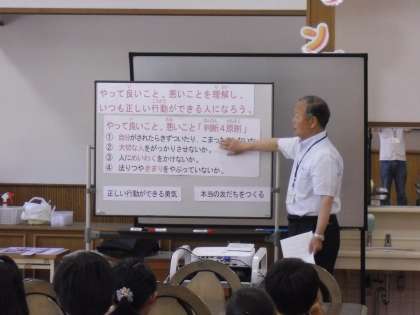 やって良いこと、悪いことを理解し、
いつも正しい行動ができる人になろう。
やって良いこと、悪いこと「判断4原則」
① 自分がされたらきずついたり、こまったり
② 大切な人をがっかりさせないか。
③ 人にめいわくをかけないか。
④ 法りつやきまりをやぶっていないか。
正しい行動ができる勇気
本当の友だちをつくる